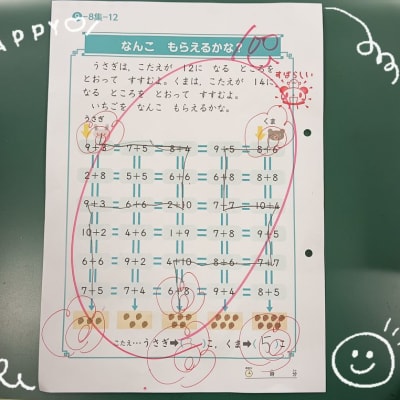 APPYO!
-8集-12
100
なんこ もらえるかな?
うさぎは，こたえが 12に なる ところを
とおって すすむよ。くまは，こたえが 14に
なる ところを とおって すすむよ。
いちごを なんこ もらえるかな。
すばらしい
うさぎ くま
9+3 = 7+5 = 8+4 = 9+5 = 8+6
2+8 = 5+5 = 6+6 = 6+8 = 9+8
9+3 = 6+6 = 2+10 = 7+7 = 10+4
10+2 = 4+6 = 1+9 = 7+8 = 9+5
6+6 = 9+2 = 4+10 = 8+6 = 7+7
7+5 = 7+4 = 6+8 = 9+4 = 8+5
こたえ…うさぎ➡( )こ，くま➡( )こ
分